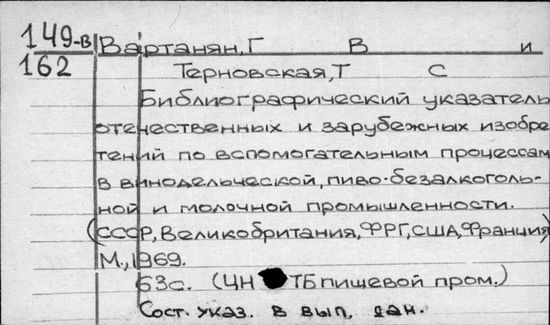 149-в Вартанян, Г В и
162 Терновская, Т С
Библиографический указатель
отечественных и зарубежных изобре
тений по вспомогательным процессам
в винодельческой, пиво-безалкоголь-
ной и молочной промышленности.
(СССР, Великобритания, ФРГ, США, Франция)
М., 1969.
63с. (ЦН ТБ пищевой пром.)
Сост. указ. в вып. дан.